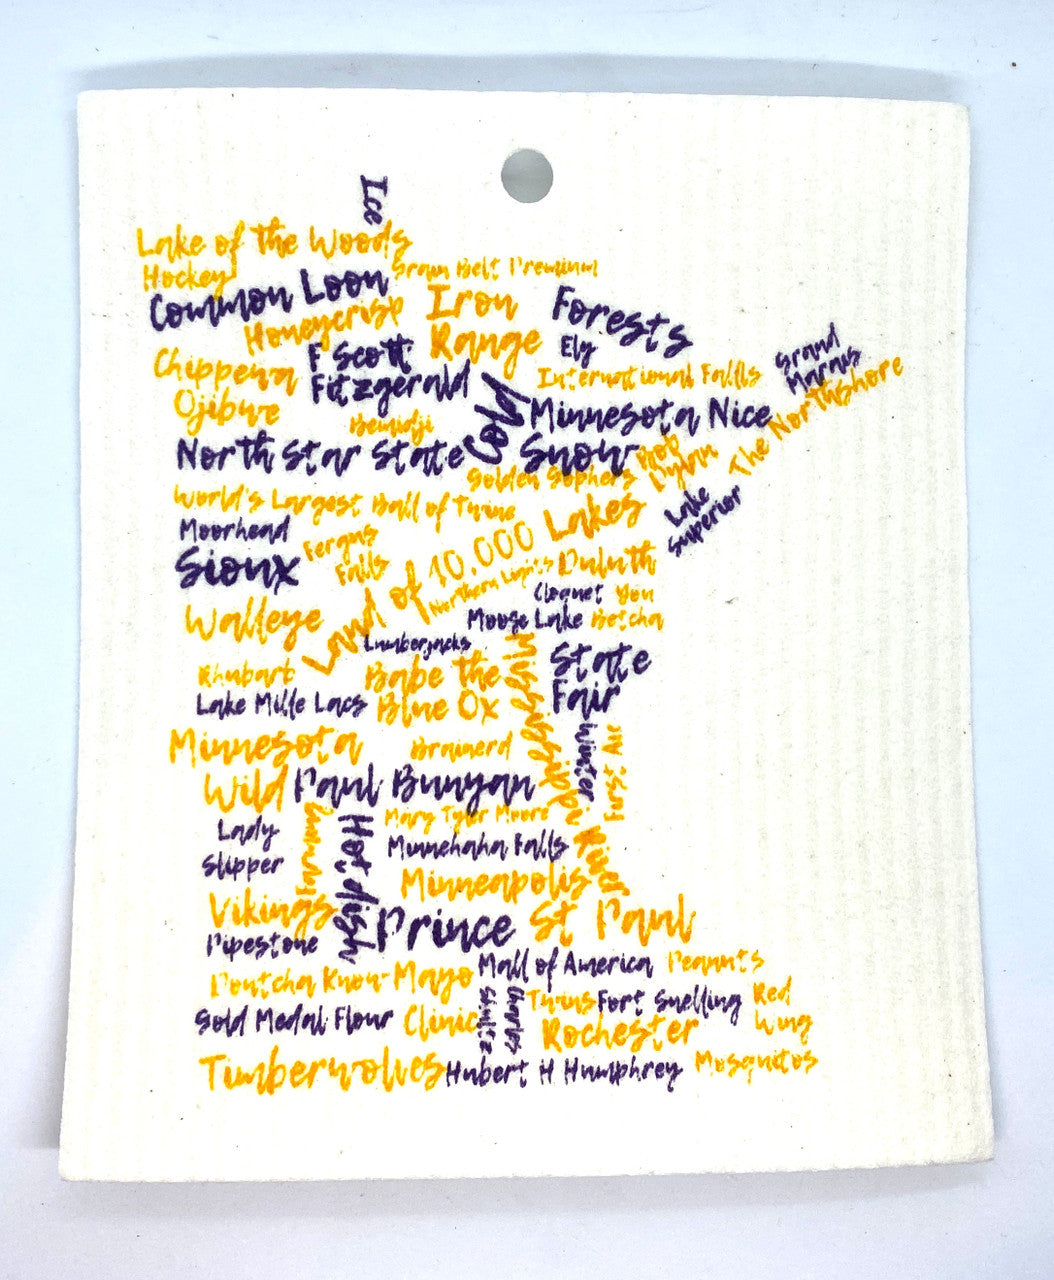 Ice
Lake of the Woods
Hockey
Grain Belt Premium
Common Loon
Honeycrisp
Iron
Range
Forests
Ely
F Scott
Fitzgerald
Chippewa
International Falls
Grand
Marais
The Northshore
Ojibwe
Bemidji
Minnesota Nice
North Star State
Snow
Bob
Dylan
Golden Gophers
World's Largest Ball of Twine
Lake
Superior
Moorhead
Fergus
Falls
Land of 10,000 Lakes
Sioux
Northern Lights
Duluth
Cloquet
You
Betcha
Walleye
Moose Lake
Lumberjacks
Rhubart
Babe the
Blue Ox
State
Fair
Lake Mille Lacs
Mississippi River
Minnesota
Wild
Brainerd
Winter
First Ave
Paul Bunyan
Mary Tyler Moore
Lady
Slipper
Hot dish
Minnehaha Falls
Minneapolis
Vikings
Prince
St Paul
Pipestone
Mall of America
Peanuts
Dontcha Know
Mayo
Clinic
Charles
Shultz
Twins
Fort Snelling
Red
Wing
Gold Medal Flour
Rochester
Timberwolves
Hubert H Humphrey
Mosquitos